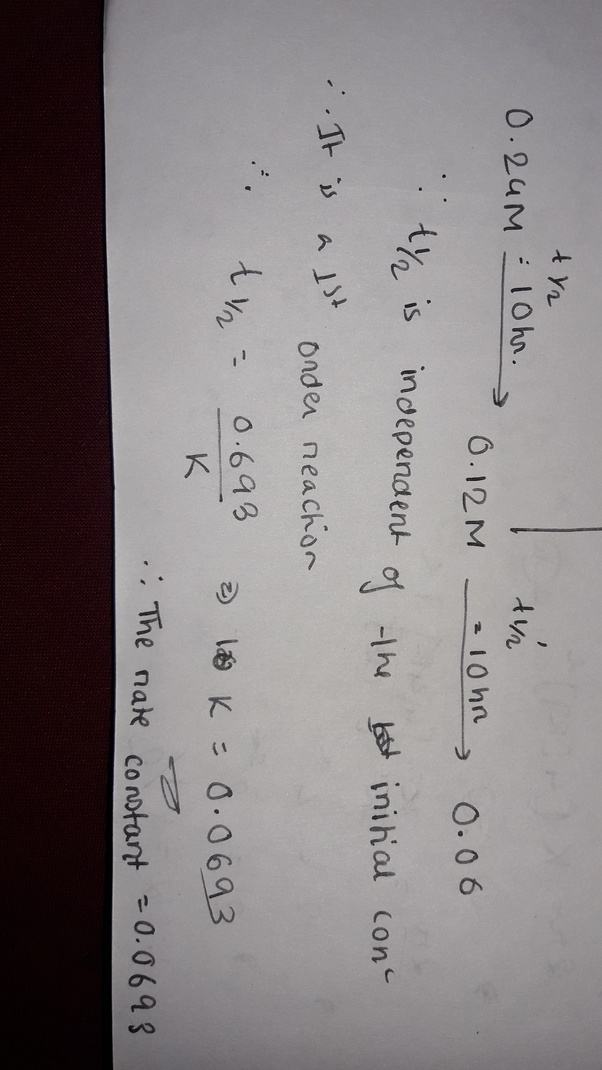 t 1/2 t 1/2'
0.24M = 10hr. → 0.12M = 10hr → 0.06
∵ t 1/2 is independent of the initial conc
∴ It is a 1st order reaction
∴ t 1/2 = 0.693 / K ⇒ K = 0.0693
∴ The rate constant = 0.0693